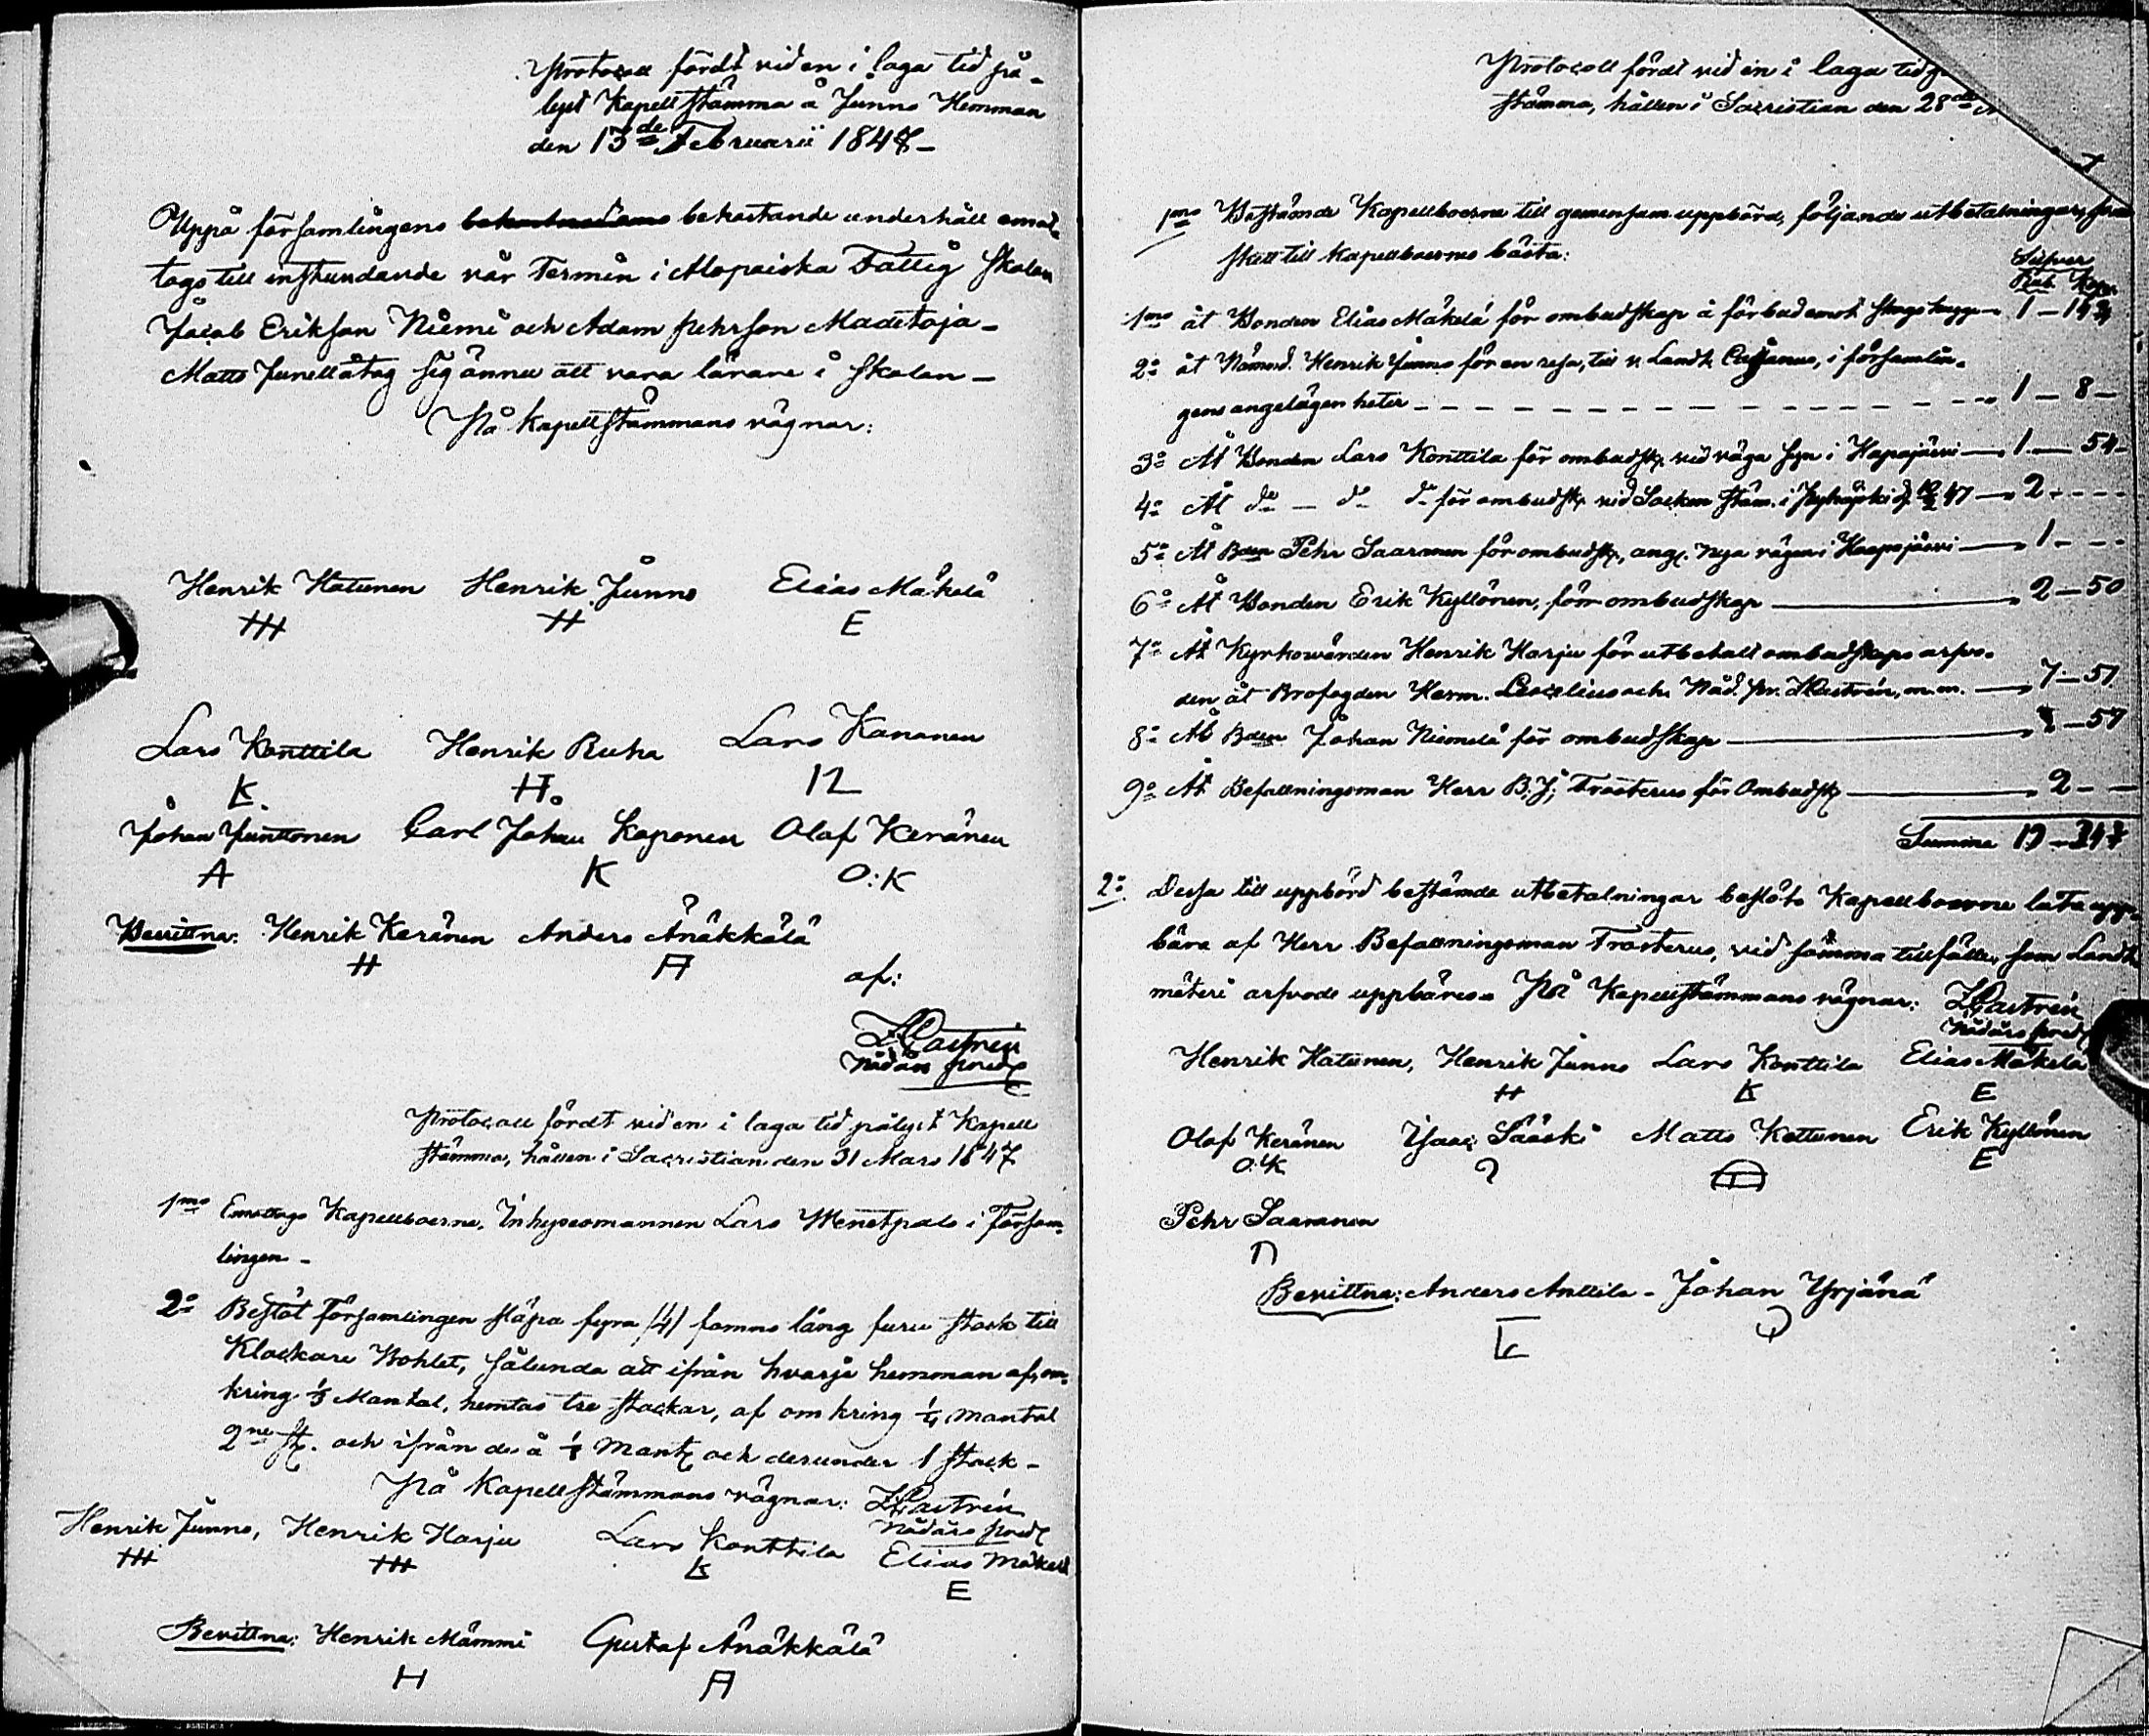 Protocoll fördt vid en i laga tid på-
lyst Kapell stämma å Junno Hemman
den 13de Februarii 1847-
Uppå församlingens bekostande underhåll emot-
togs till instundande vår Termin i Alopaiska Fattig Skolan
Jacob Erikson Niemi och Adam Pehrson Madetoja-
Matts Junell åtog sig ännu att vara lärare i Skolan-
På Kapellstämmans vägnar:
Henrik Hatunen Henrik Junno Elias Mäkelä
HH H E
Lars Konttila Henrik Ruha Lars Kananen
K. H. 12
Johan Junttonen Carl Johan Koponen Olof Keränen
A K O:K
Bevittna: Henrik Keränen Anders Änäkkälä
H A
af:
Z Castrén
Nådårs pred
Protocoll fördt vid en i laga tid pålyst Kapell
stämma, hållen i Sacristian den 31 Mars 1847
1mo Emottogs Kapellboerne, Inhysesmannen Lars Menetpalo i Försam-
lingen-
2o Beslöt Församlingen släpa fyra /4/ famns lång furu stock till
Klockare Bohlet, sålunda att ifrån hvarje hemman af, om-
kring 1/3 Mantal, hemtas tre stockar, af omkring 1/4 mantal
2ne st. och ifrån de å Mant och derunder 1 stock-
På Kapellstämmans vägnar: Z Castrén
Nådårs pred
Henrik Junno, Henrik Harju Lars Konttila Elias Mäkelä
HH HH K E
Bevittna: Henrik Mämmi Gustaf Änäkkälä
H A
Protocoll fördt vid en i laga tid
stämma, hållen i Sacristian den 28de
1mo Bestämde Kapellboerne till gemensam uppbörd, följande utbetalningar, som
skett till Kapellboernes bästa:
Silfver
Rub. Kop.
1mo åt Bonden Elias Mäkelä för ombudskap å förbud emot 1 -
2o åt Nämnd. Henrik Junno för en resa, till v. Landt Cajanus, i församlin-
gens angelägenheter 1 - 8 -
3o Åt Bonden Lars Konttila för ombudsk. vid väga syn i Hapajärvi 1 - 54 -
4o Åt do - do do för ombudsk. vid Socken stäm. i Pyhäjoki 47 - 2 - - -
5o Åt Bden Pehr Saaranen för ombudsk., ang. nya vägen i Haapajärvi 1 - - -
6o Åt Bonden Erik Kyllönen, för ombudskap 2 - 50
7o Åt Kyrkowärden Henrik Harju för utbetalt ombudskaps arfvo-
den åt Brofogden Herm. och Nåd. pr. Z Castrén, m.m. 7 - 51
8o Åt Bden Johan Niemelä för ombudskap - 57
9o Åt Befallningsman Herr B: J: Frosterus för Ombudsk 2 - -
Summa 19 -
2o Dessa till uppbörd bestämda utbetalningar beslöto Kapellboerne låta upp-
bära af Herr Befallningsman Frosterus, vid samma tillfälle, som Landt-
mäteri arfvode uppbäres- På Kapellstämmans vägnar: Z Castrén
Nådårs pred
Henrik Hatunen, Henrik Junno Lars Konttila Elias Mäkelä
H K E
Olof Keränen Isaac Sääski Matts Kottunen Erik Kyllönen
O:K E
Pehr Saaranen
Bevittna: Anders Anttila - Johan Yrjänä